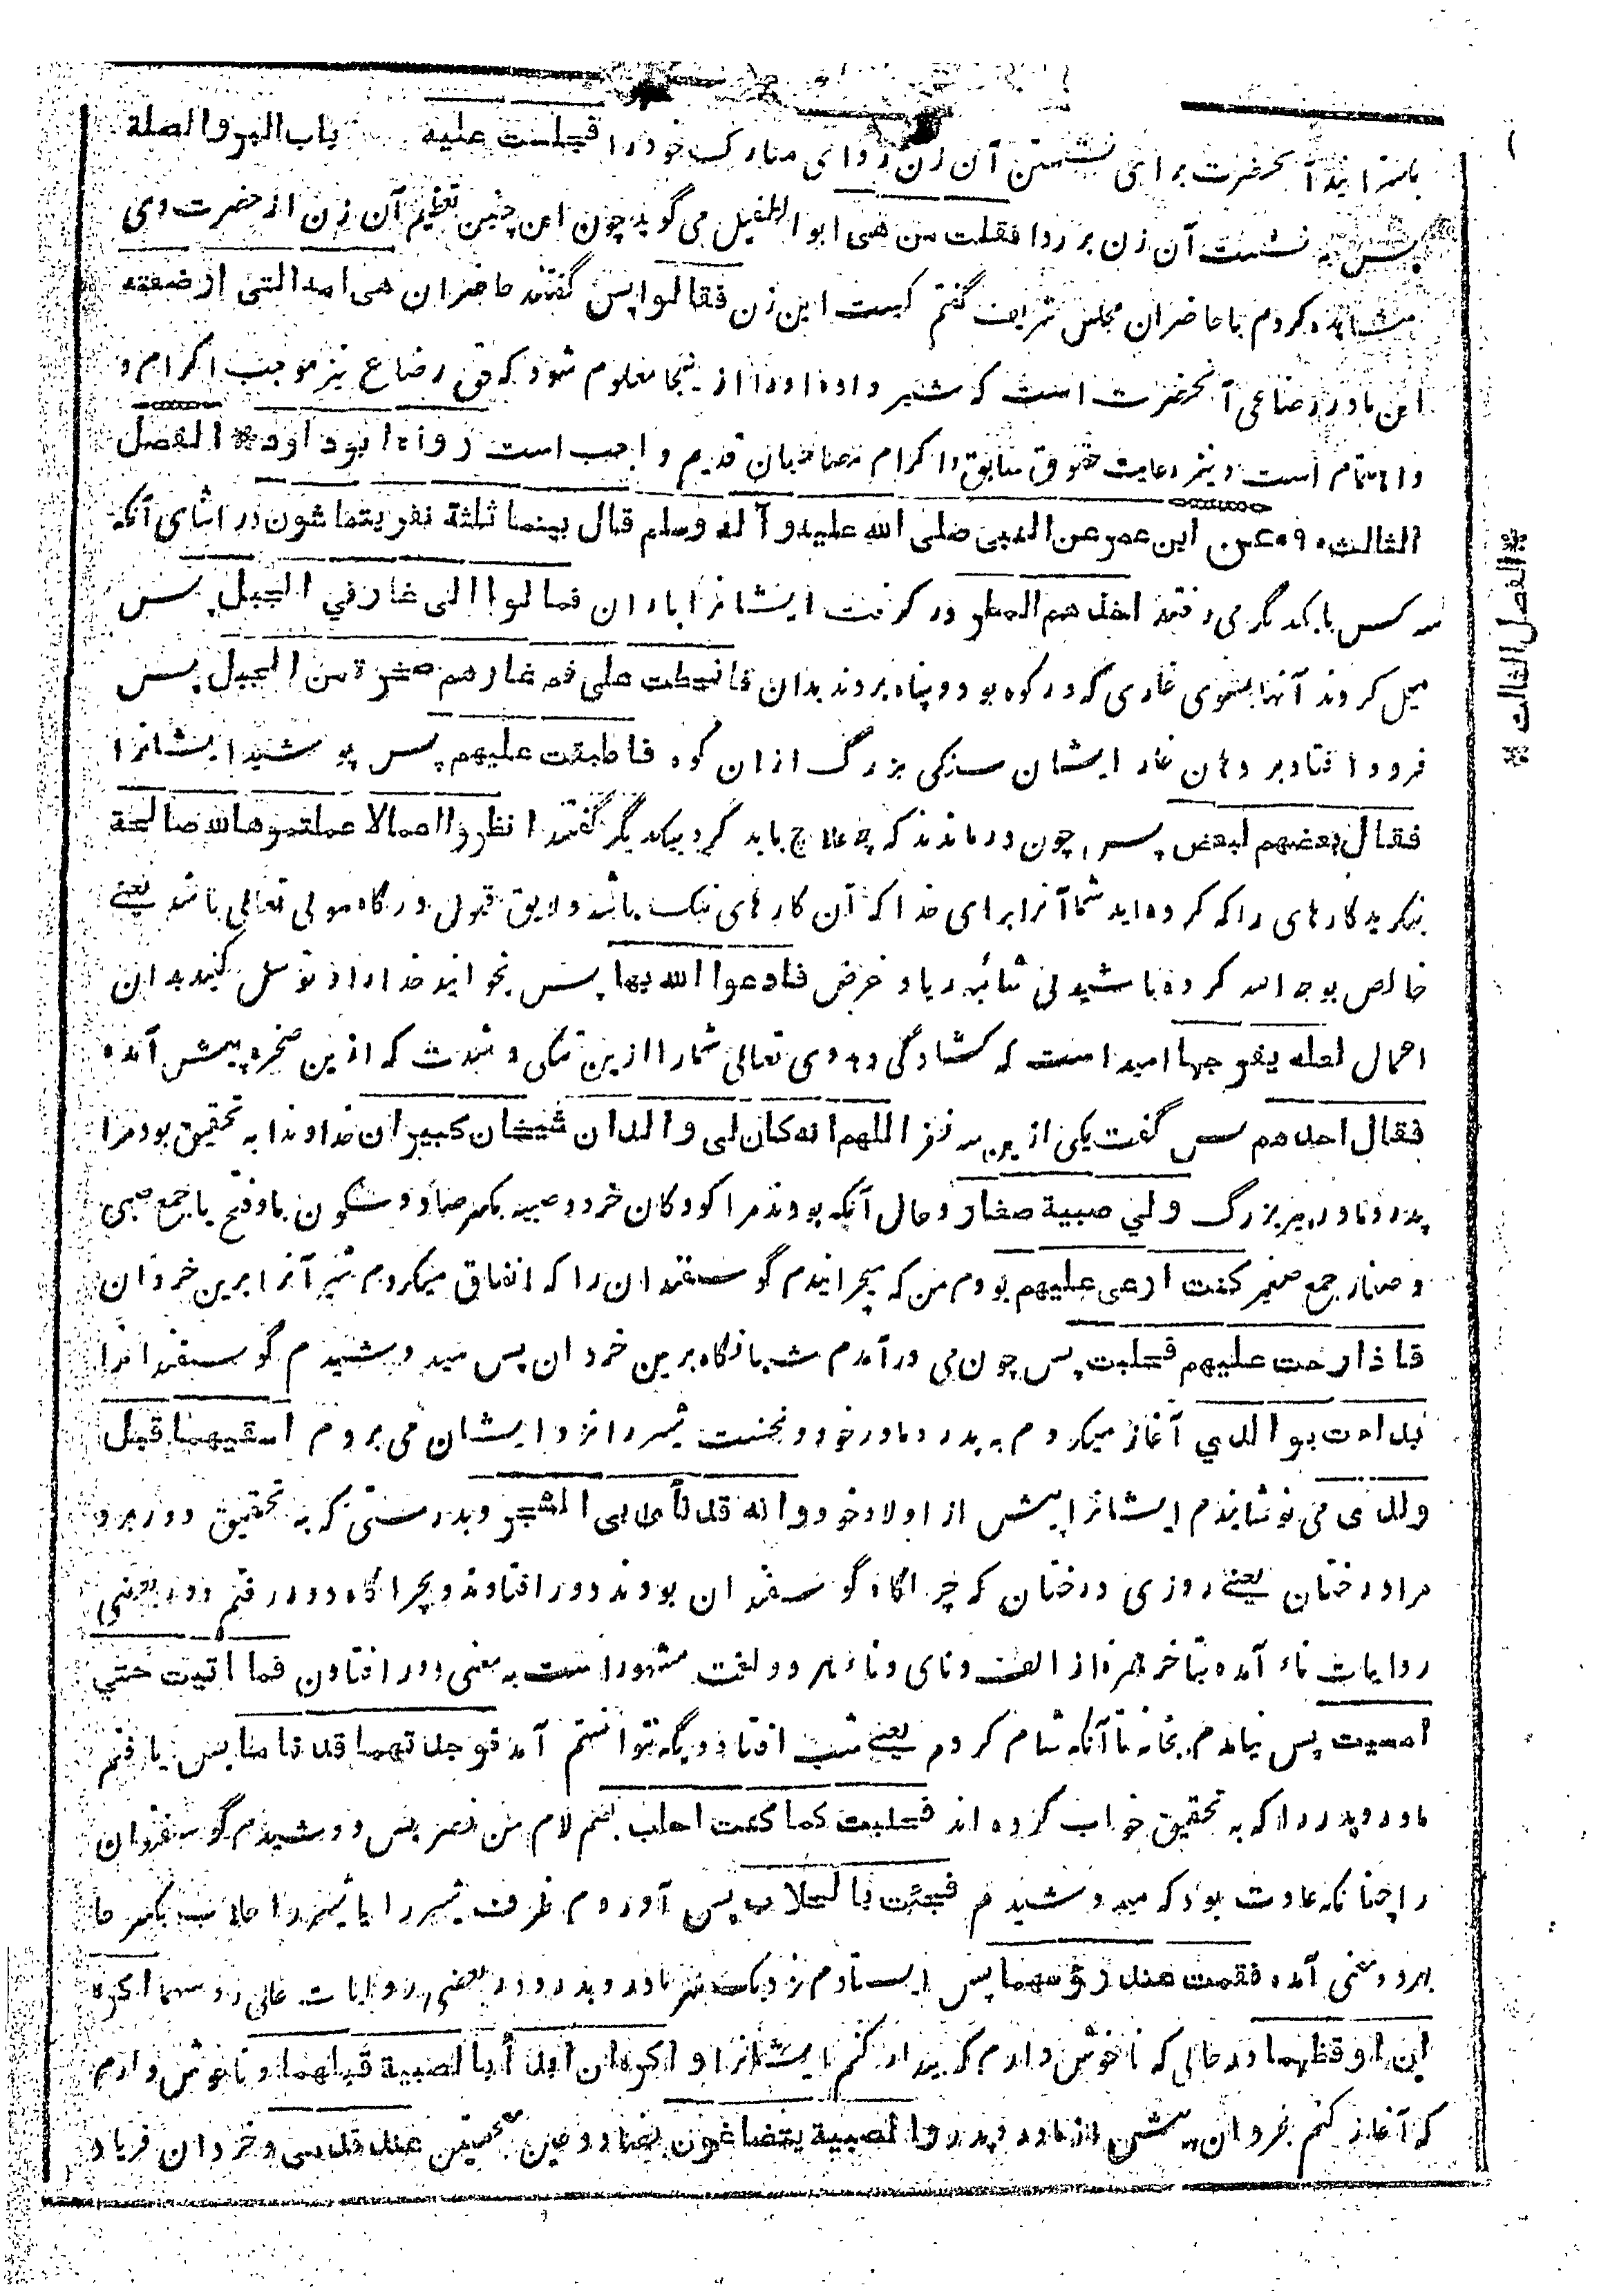 باب البر والصلة
بگسترانید آنحضرت برای نشستن آن زن ردای مبارک خود را فجلست علیه
پس به نشست آن زن بر ردا فقلت من هی ابو الطفیل می گوید چون این چنین تعظیم آن زن از حضرت وی
مشاهده کردم با حاضران مجلس شریف گفتم کیست این زن فقالوا پس گفتند حاضران هی امه التی ارضعته
این مادر رضاعی آنحضرت است که شیر داده اورا از ینجا معلوم شود که حق رضاع نیز موجب اکرام و
و اهتمام است و نیز رعایت حقوق سابق و اکرام مصاحبان قدیم واجب است رواه ابو داود * الفصل
الثالث * ۹ * عن ابن عمر عن النبی صلی الله علیه و آله وسلم قال بینما ثلثة نفر یتماشون در اثنای آنکه
سه کس با یکدیگر می رفتند اخذهم المطر در گرفت ایشانرا باران فمالوا الی غار فی الجبل پس
میل کردند آنها بسوی غاری که در کوه بود و پناه بردند بدان فانحطت علی فم غارهم صخرة من الجبل پس
فرود افتاد بر دهان غار ایشان سنگی بزرگ ازان کوه فاطبقت علیهم پس پوشید ایشانرا
فقال بعضهم لبعض پس چون درماندند که چه علاج باید کرد بیکدیگر گفتند انظروا اعمالا عملتموها لله صالحة
بنگرید کارهای را که کرده اید شما آنرا برای خدا که آن کارهای نیک باشد و لایق قبول درگاه مولی تعالی باشد یعنی
خالص بوجه الله کرده باشید بی شائبه ریا و غرض فادعوا الله بها پس بخوانید خدا را و توسل کنید بدان
اعمال لعله یفرجها امید است که کشادگی دهد وی تعالی شمارا ازین تنگی و شدت که ازین صخره پیش آمده
فقال احدهم پس گفت یکی ازین سه نفر اللهم انه کان لی والدان شیخان کبیران خداوندا به تحقیق بود مرا
پدر و مادر پیر بزرگ ولی صبیة صغار و حال آنکه بودند مرا کودکان خرد و صبیه بکسر صاد و سکون با و فتح یا جمع صبی
و صغار جمع صغیر کنت ارعی علیهم بودم من که میچرانیدم گوسفندان را که انفاق میکردم شیر آنرا برین خردان
فاذا رحت علیهم فحلبت پس چون می در آمدم شبانگاه برین خردان پس میدوشیدم گوسفندانرا
بدأت بوالدی آغاز میکردم به پدر و مادر خود و نخست شیر را نزد ایشان می بردم اسقیهما قبل
ولدی می نوشانیدم ایشانرا پیش از اولاد خود وانه قد نأی بی الشجر و بدرستی که به تحقیق دور برد
مرا درختان یعنی روزی درختان که چراگاه گوسفندان بودند دور افتادند و بچراگاه دور رفتم و در بعضی
روایات ناء آمده بتاخر همزه از الف و نای و ناء هر دو لغت مشهور است به معنی دور افتادن فما اتیت حتی
امسیت پس نیامدم بخانه تا آنکه شام کردم یعنی شب افتاد و پگه نتوانستم آمد فوجدتهما قد ناما پس یافتم
مادر و پدر را که به تحقیق خواب کرده اند فحلبت کما کنت احلب بضم لام من نصر پس دوشیدم گوسفندان
را چنانکه عادت بود که میدوشیدم فجئت بالحلاب پس آوردم ظرف شیر را یا شیر را حلاب بکسر حا
بهر دو معنی آمده فقمت عند رؤسهما پس ایستادم نزدیک سر مادر و پدر و در بعضی روایات علی رؤسهما اکره
ان اوقظهما در حالی که ناخوش دارم که بیدار کنم ایشانرا و اکره ان ابدأ بالصبیة قبلهما و ناخوش دارم
که آغاز کنم بخردان پیش از مادر و پدر والصبیة یتضاغون بضاد و غین معجمتین عند قدمی و خردان فریاد
* الفصل الثالث *